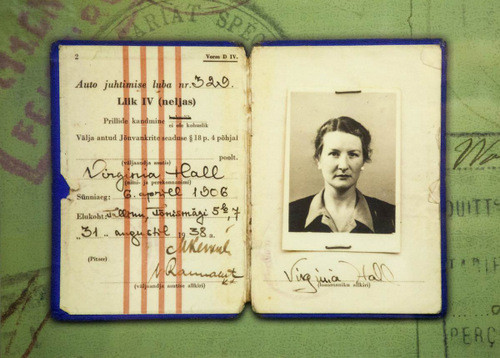 2
Vorm D IV.
Auto juhtimise luba nr. 329.
Liik IV (neljas)
Prillide kandmine
ei ole kohuslik
Välja antud Jõuvankrite seaduse § 18 p. 4 põhjal
poolt.
(väljaandja asutis)
Virginia Hall
(nimi- ja perekonnanimi)
Sünniaeg: 6. aprill 1906
Elukoht: Tallinn, Tõnismägi 5ª, 7
"31" augustil 1938 a.
(Pitser)
(väljaandja asutise allkiri)
Virginia Hall
(omaniku allkiri)
ARIAT SPÉC
DUITT
PERÇ